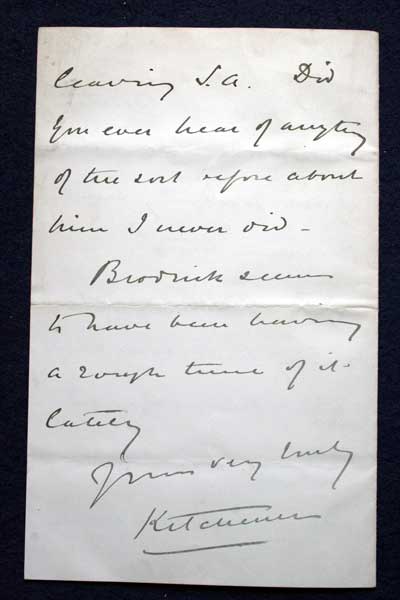 leaving S.A. Did
you ever hear of anything
of the sort before about
him I never did -
Brodrick seems
to have been having
a rough time of it
lately
Yours very truly
Kitchener